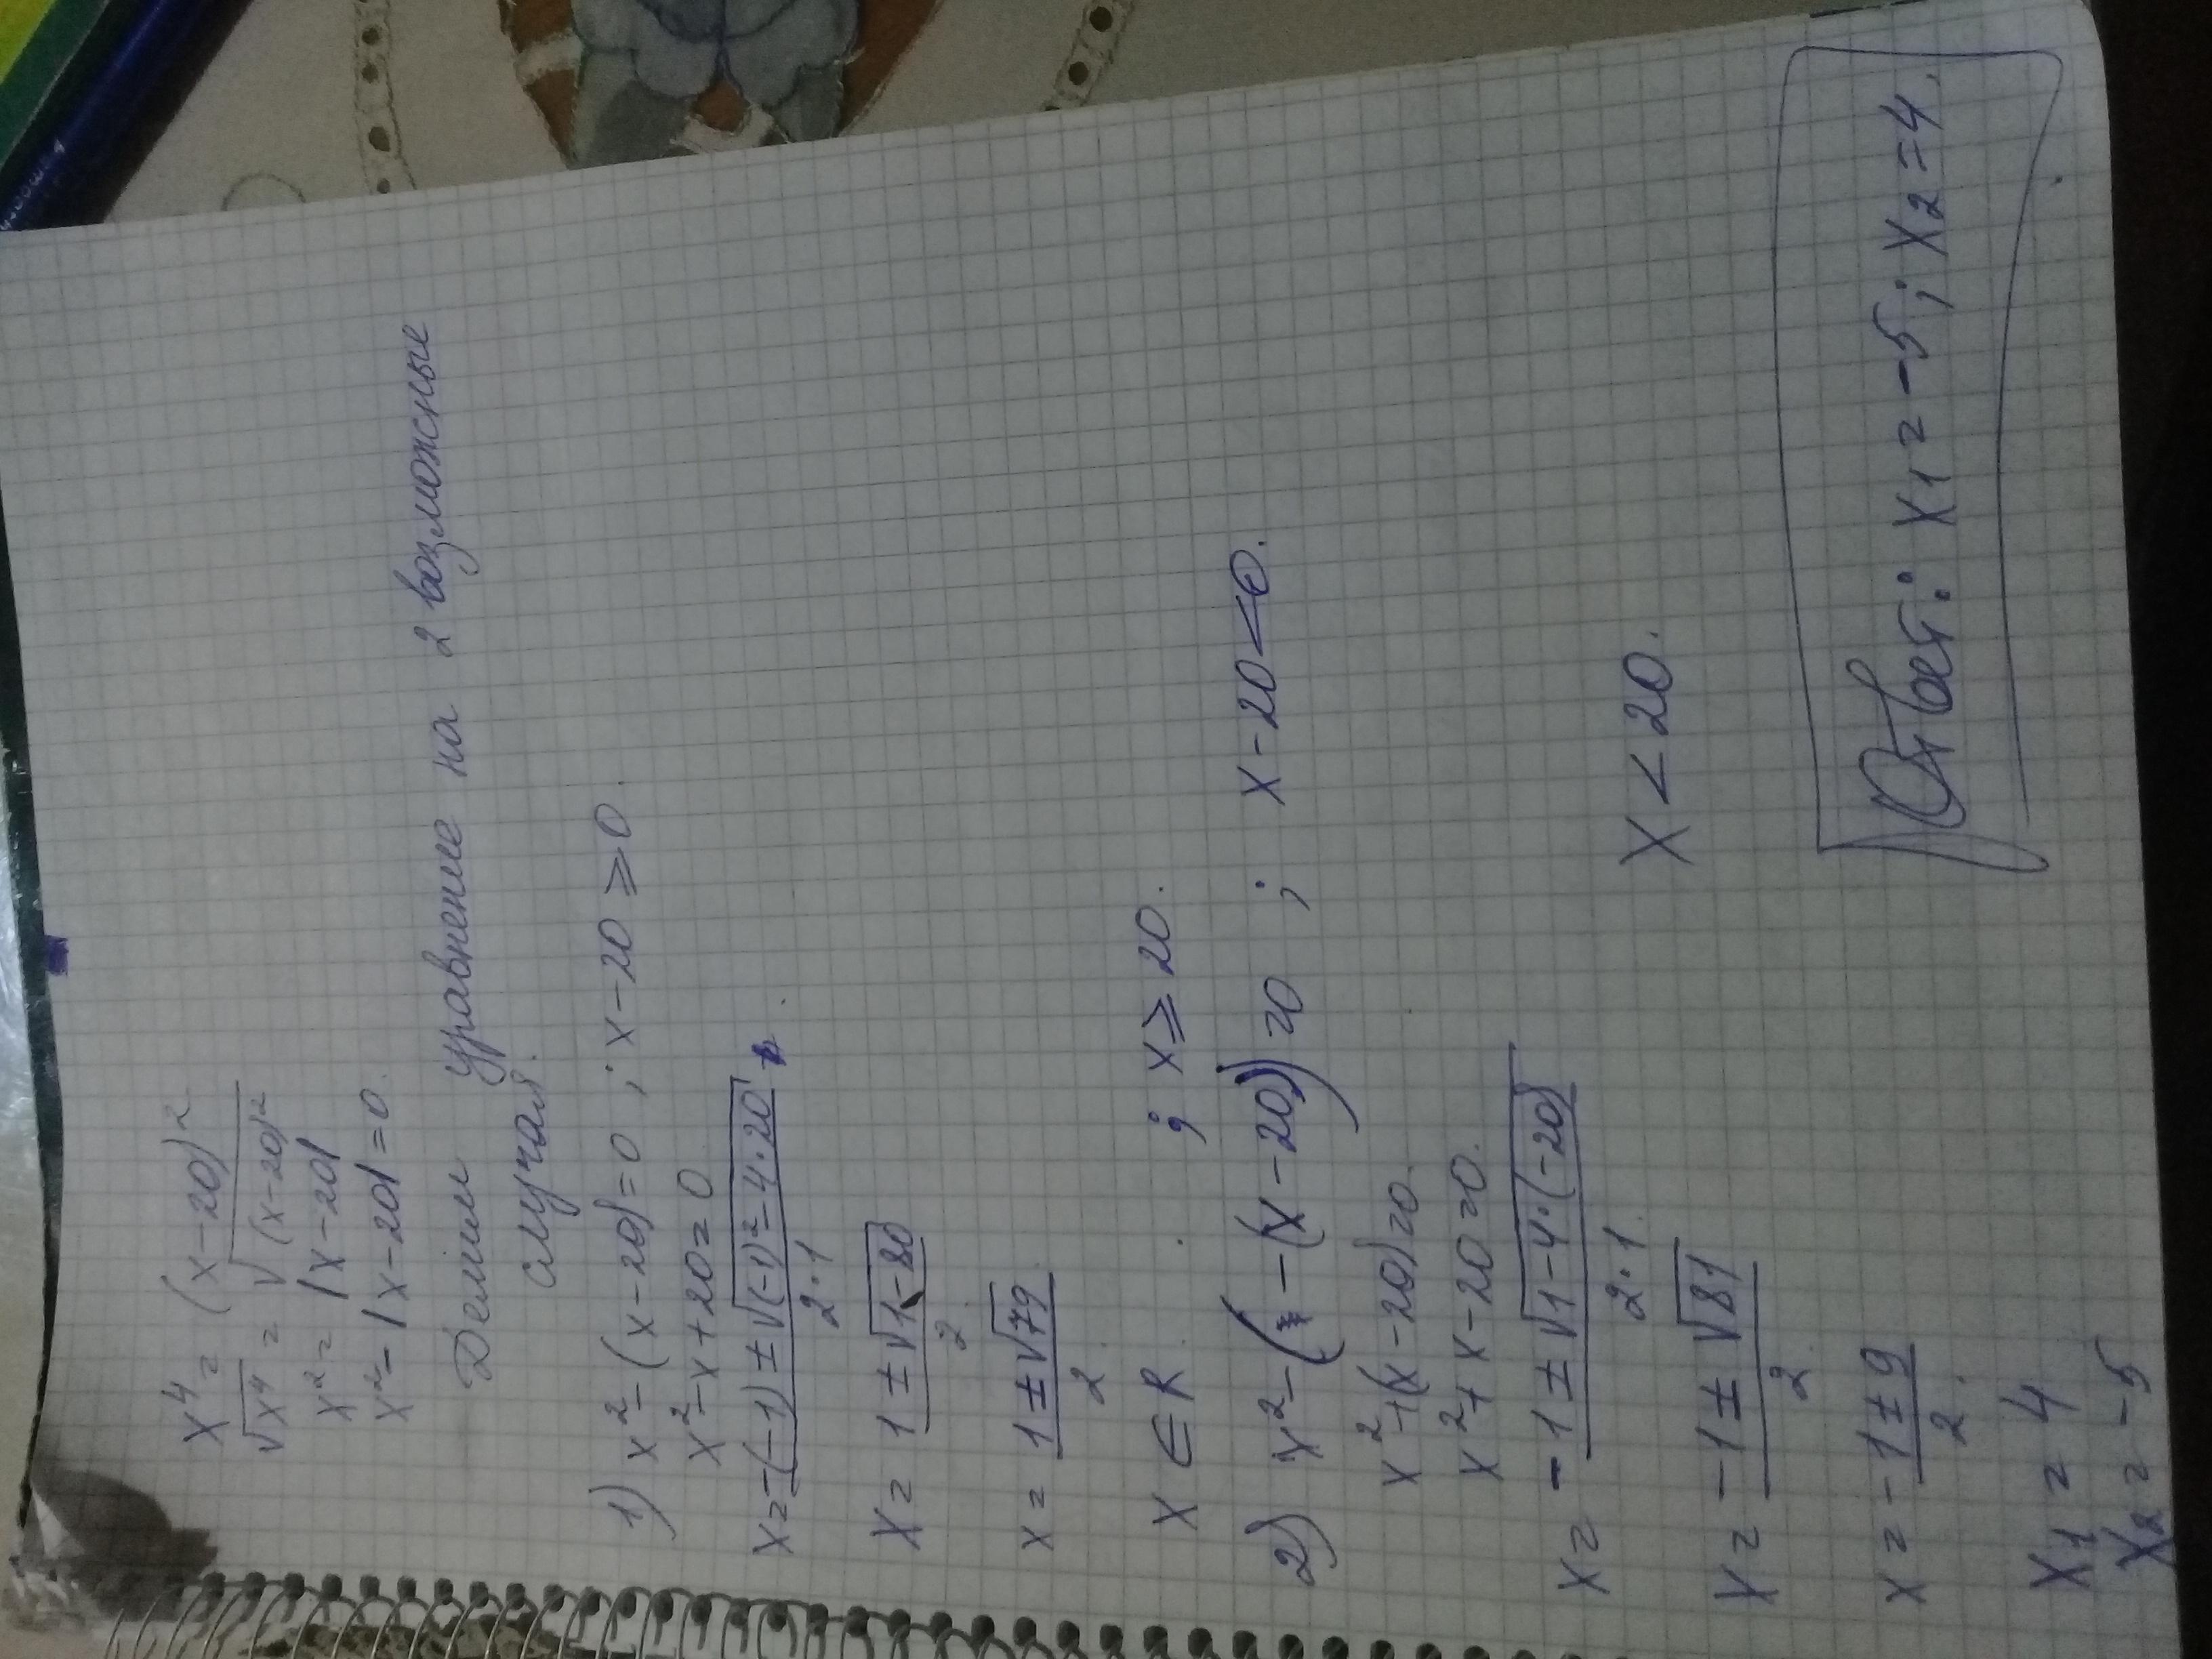 x⁴ = (x-20)²
√x⁴ = √(x-20)²
x² = |x-20|
x² - |x-20| = 0.
Делим уравнение на 2 возможные
случая.
1) x² - (x-20) = 0 ; x-20 ≥ 0.
x² - x + 20 = 0
x = -(-1) ± √(-1)² - 4·20 / 2·1
x = 1 ± √1-80 / 2
x = 1 ± √79 / 2
x ∈ R ; x ≥ 20.
2) x² - (-(x-20)) = 0 ; x-20 < 0.
x² + (x-20) = 0.
x² + x - 20 = 0.
x = -1 ± √1-4·(-20) / 2·1
x = -1 ± √81 / 2 x < 20.
x = -1 ± 9 / 2.
x₁ = 4
x₂ = -5
Ответ: x₁ = -5; x₂ = 4.